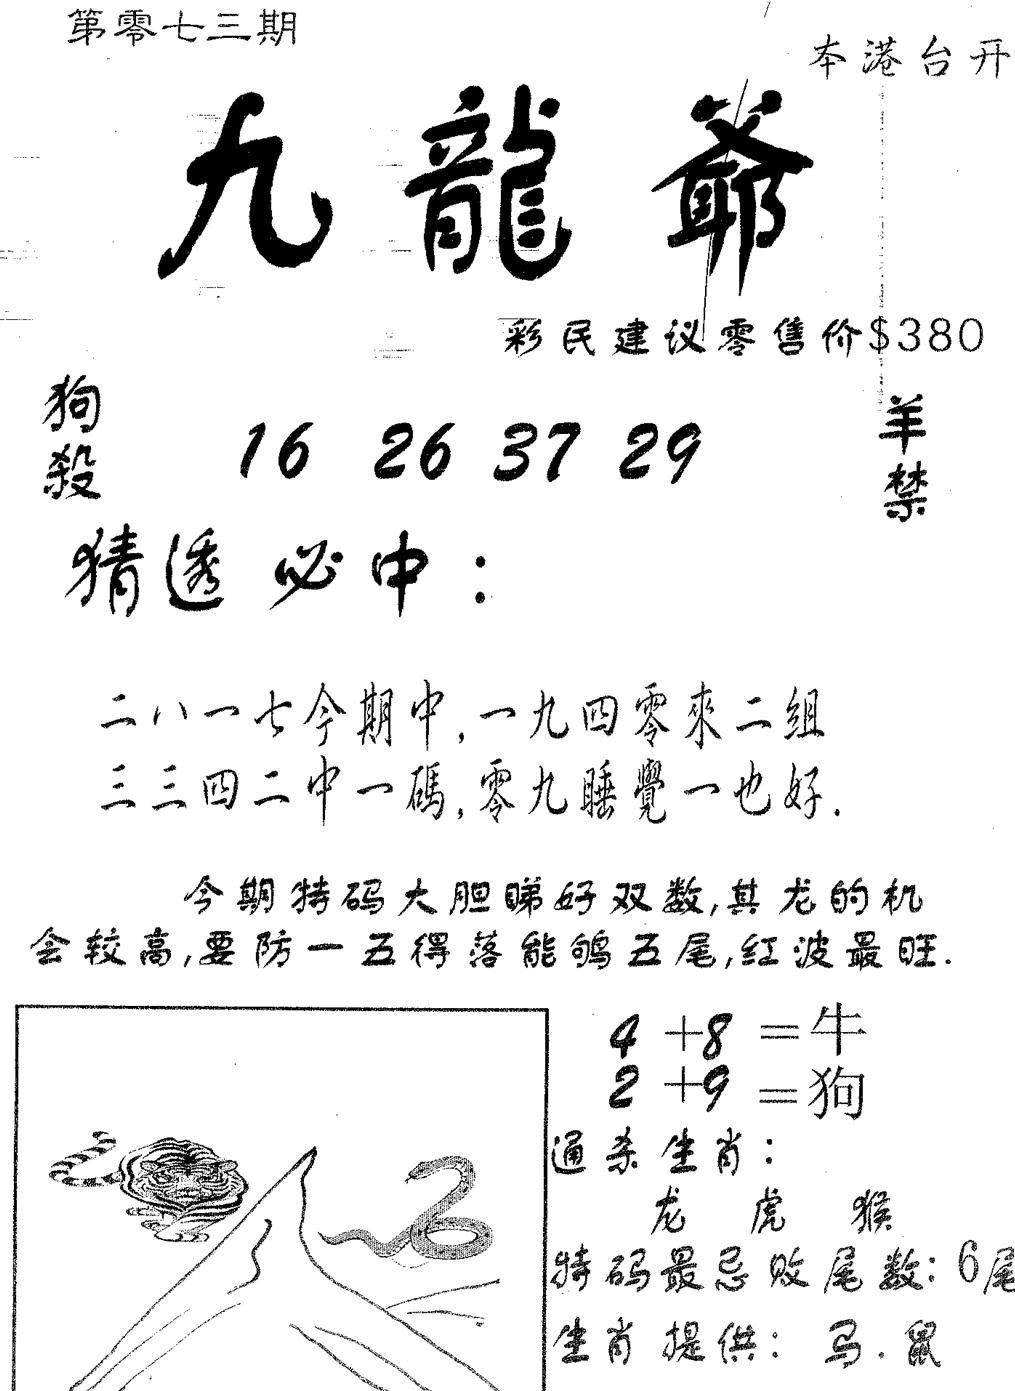 第零七三期
本港台开
九龍爺
彩民建议零售价$380
狗殺
16 26 37 29
羊禁
猜透必中：
二八一七今期中,一九四零來二組
三三四二中一碼,零九睡覺一也好.
今期特码大胆睇好双数,其龙的机
会较高,要防一五得落能鸲五尾,红波最旺.
4+8=牛
2+9=狗
通杀生肖：
龙 虎 猴
特码最忌败尾数：6尾
生肖提供：马.鼠